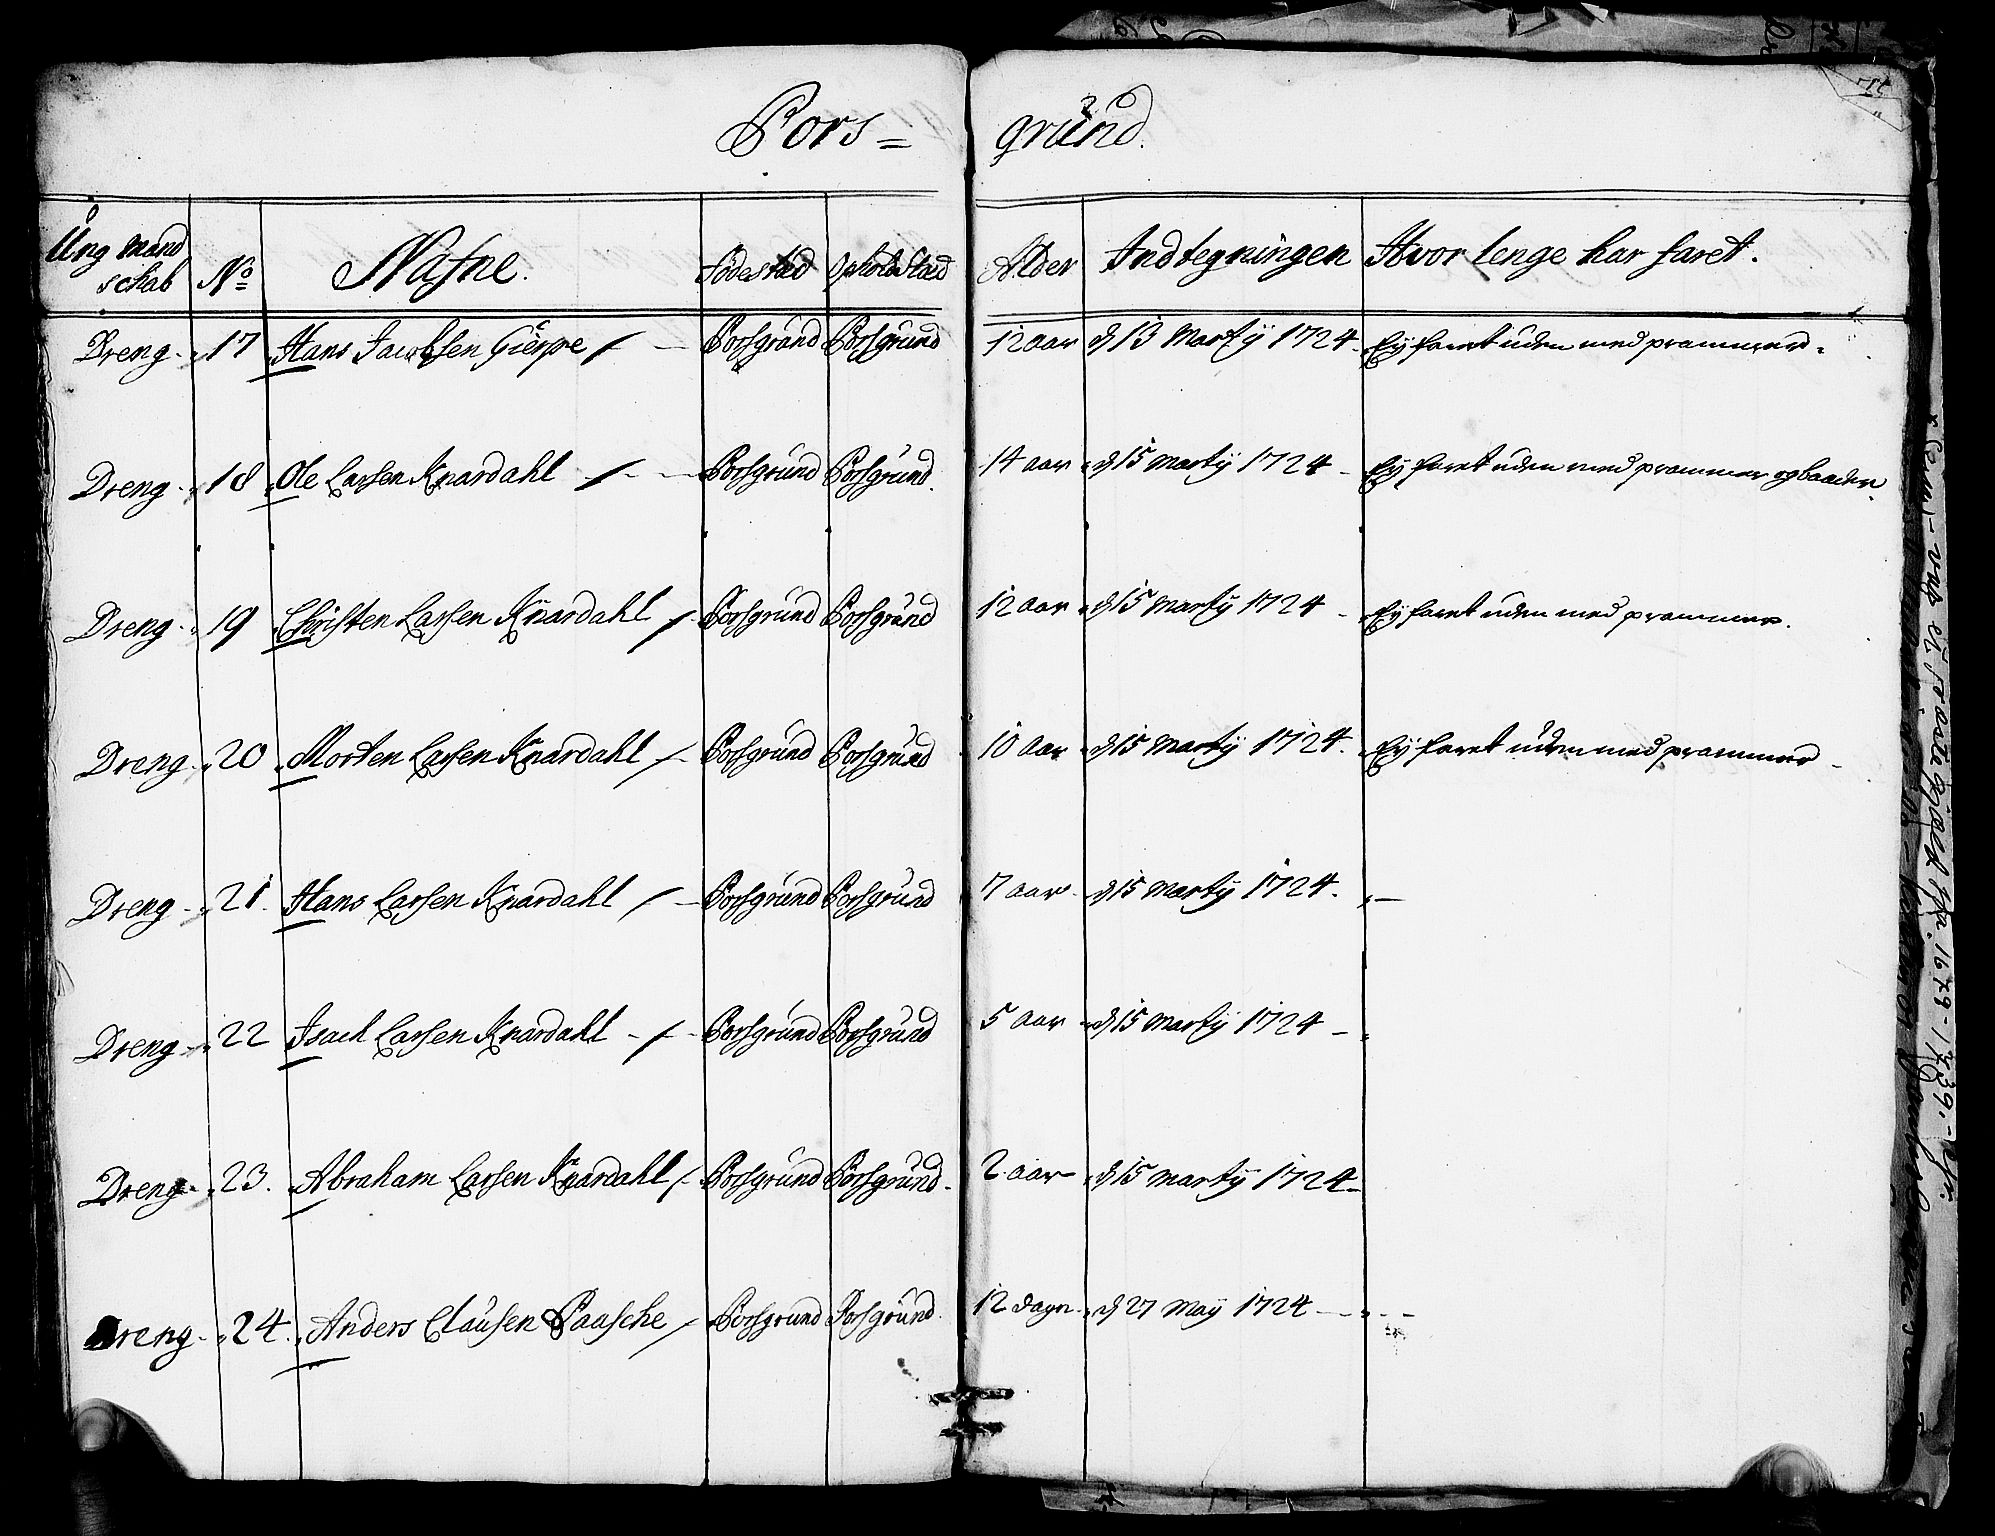 Pors= gründ.
Üng mand schab No Nafne. Födestæd Opholdstæd Alder Indtegningen Hvor lenge har faret.
Dreng 17 Hans Jacobsen Gierpe Porsgrund Porsgrund 12 aar d 13 Martij 1724 Ey faret uden med prammer.
Dreng 18 Ole Larsen Knardahl Porsgrund Porsgrund. 14 aar d 15 Martij 1724 Ey faret uden med prammer og baader.
Dreng 19 Christen Larsen Knardahl Porsgrund Porsgrund 12 aar d 15 Martij 1724 Ey faret uden med prammer.
Dreng 20 Morten Larsen Knardahl Porsgrund Porsgrund 10 aar d 15 Martij 1724. Ey faret uden med prammer
Dreng 21. Hans Larsen Knardahl Porsgrund Porsgrund 7 aar d 15 Martij 1724.
Dreng 22 Isach Larsen Knardahl Porsgrund Porsgrund 5 aar d 15 Martij 1724
Dreng 23. Abraham Larsen Knardahl Porsgrund Porsgrund. 2 aar d 15 Martij 1724
Dreng 24. Anders Clausen Paasche Porsgrund Porsgrund. 12 dager d 27 Maij 1724